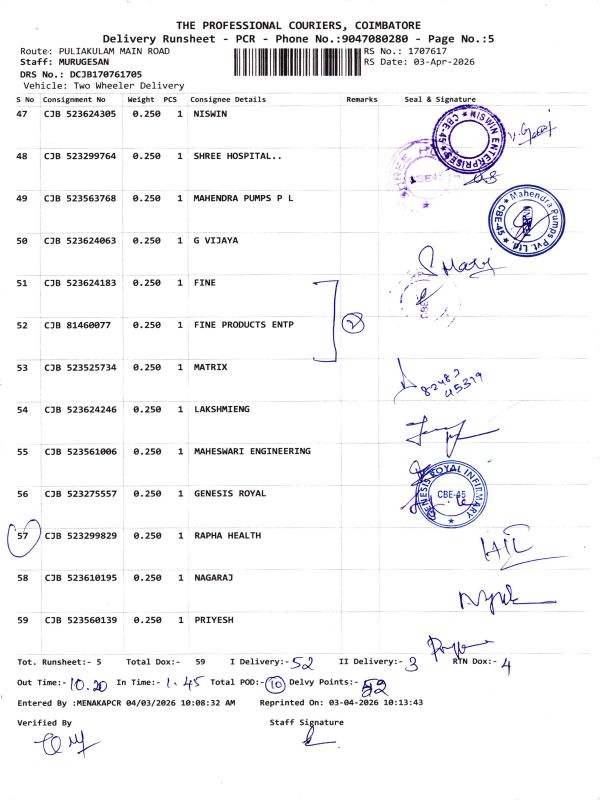 THE PROFESSIONAL COURIERS, COIMBATORE
Delivery Runsheet - PCR - Phone No.:9047080280 - Page No.:5
Route: PULIAKULAM MAIN ROAD RS No.: 1707617
Staff: MURUGESAN RS Date: 03-Apr-2026
DRS No.: DCJB170761705
Vehicle: Two Wheeler Delivery
S No Consignment No Weight PCS Consignee Details Remarks Seal & Signature
47 CJB 523624305 0.250 1 NISWIN
NISWIN ENTERPRISES CBE-45
48 CJB 523299764 0.250 1 SHREE HOSPITAL..
CBE-45
49 CJB 523563768 0.250 1 MAHENDRA PUMPS P L
Mahendra Pumps Pvt. Ltd. CBE-45
50 CJB 523624063 0.250 1 G VIJAYA
51 CJB 523624183 0.250 1 FINE
52 CJB 81460077 0.250 1 FINE PRODUCTS ENTP
2
53 CJB 523525734 0.250 1 MATRIX
54 CJB 523624246 0.250 1 LAKSHMIENG
55 CJB 523561006 0.250 1 MAHESWARI ENGINEERING
56 CJB 523275557 0.250 1 GENESIS ROYAL
GENESIS ROYAL INFIRMARY CBE-45
57 CJB 523299829 0.250 1 RAPHA HEALTH
58 CJB 523610195 0.250 1 NAGARAJ
59 CJB 523560139 0.250 1 PRIYESH
Tot. Runsheet:- 5 Total Dox:- 59 I Delivery:- 52 II Delivery:- 3 RTN Dox:- 4
Out Time:- 10.20 In Time:- 1.45 Total POD:- 10 Delvy Points:- 52
Entered By :MENAKAPCR 04/03/2026 10:08:32 AM Reprinted On: 03-04-2026 10:13:43
Verified By Staff Signature